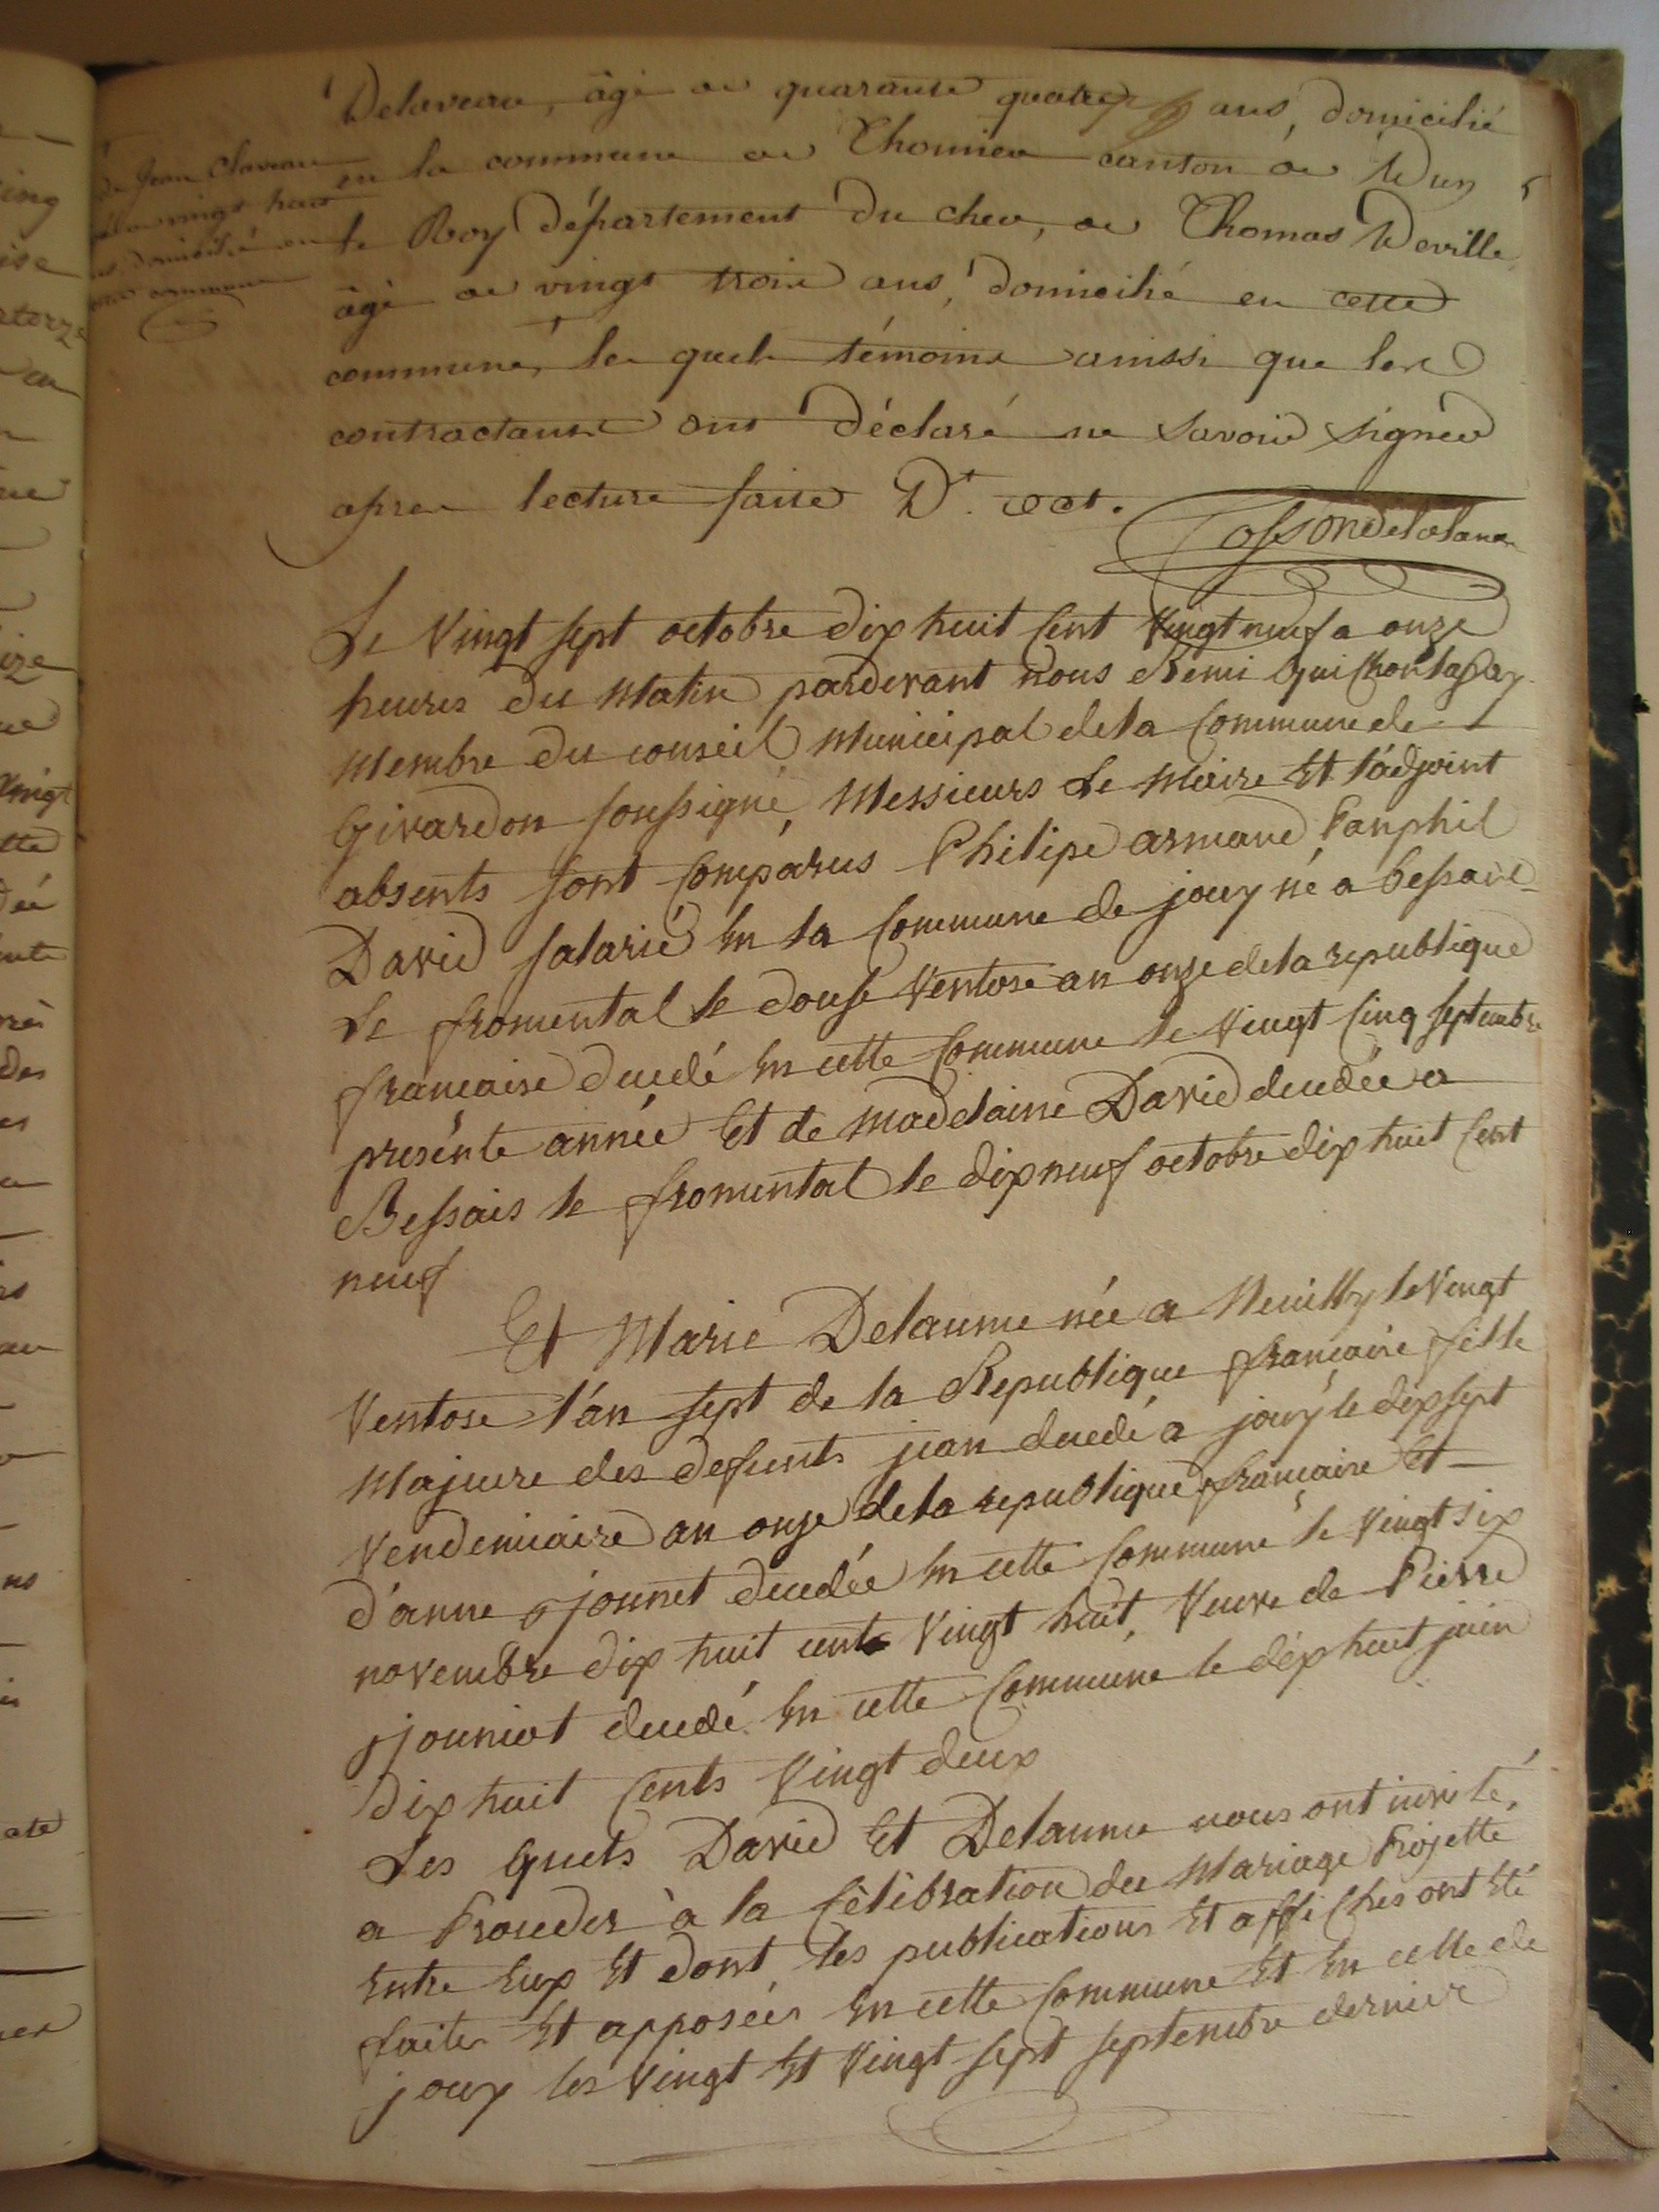 Delaveau, âgé de quarante quatre ans, domicilié
en la commune de Thoumieu canton de Dun
le Roy département du cher, de Thomas Deville
âgé de vingt trois ans, domicilié en cette
commune, les quels témoins ainssi que les
contractants ont déclaré ne savoir signer
apres lecture faite D.t act.
de Jean Claveau
vingt huit
ans domicilié en
commune
Cossondelalane
Le Vingt sept octobre dix huit Cent Vingt neuf a onze
heures du Matin pardevant nous Remi
Membre du conseil Municipal dela Commune de
Givardon soussigné, Messieurs Le Maire Et l'adjoint
absents sont Comparus Philipe armand Panphil
David salarié En la Commune de jouy né a bessais
Le fromental le douse Ventose an onze dela republique
francaise decedé En cette Commune le Vingt Cinq septembre
présente année Et de Maddelaine David decedée a
Bessais le fromental le dix neuf octobre dix huit Cent
neuf
Et Marie Delaume née a Neuilly le Vingt
Ventose l'an sept de la Republique française fille
Majeure des defunts jean decedé a jouy le dix sept
Vendemiaire an onze dela republique francaise Et
d'anne jonnet decedée En cette Commune le Vingt six
novembre dix huit cent Vingt huit, Veuve de Pierre
jouniot decedé En cette Commune le dix huit juin
dix huit Cents Vingt deux
Les quels David Et Delaume nous ont invité,
a Proceder à la Célébration du Mariage Projetté
Entre Eux Et dont les publications Et affiches ont Eté
faites Et apposées En cette Commune Et En celle de
jouy les Vingt Et Vingt sept septembre dernier